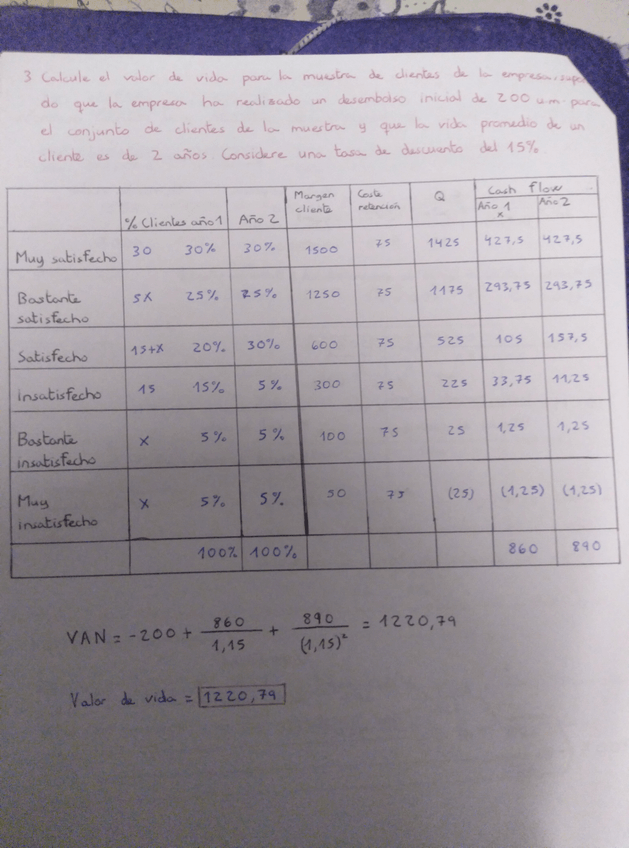 3 Calcule el valor de vida para la muestra de clientes de la empresa, supo
do que la empresa ha realizado un desembolso inicial de 200 u.m para
el conjunto de clientes de la muestra y que la vida promedio de un
cliente es de 2 años. Considere una tasa de descuento del 15%.
% Clientes año 1 Año 2 Margen cliente Coste retención Q Cash flow
Año 1 Año 2
x
Muy satisfecho 30 30% 30% 1500 75 1425 427,5 427,5
Bastante satisfecho 5x 25% 25% 1250 75 1175 293,75 293,75
Satisfecho 15+x 20% 30% 600 75 525 105 157,5
insatisfecho 15 15% 5% 300 75 225 33,75 11,25
Bastante insatisfecho x 5% 5% 100 75 25 1,25 1,25
Muy insatisfecho x 5% 5% 50 75 (25) (1,25) (1,25)
100% 100% 860 890
VAN = -200 + 860/1,15 + 890/(1,15)² = 1220,79
Valor de vida = 1220,79